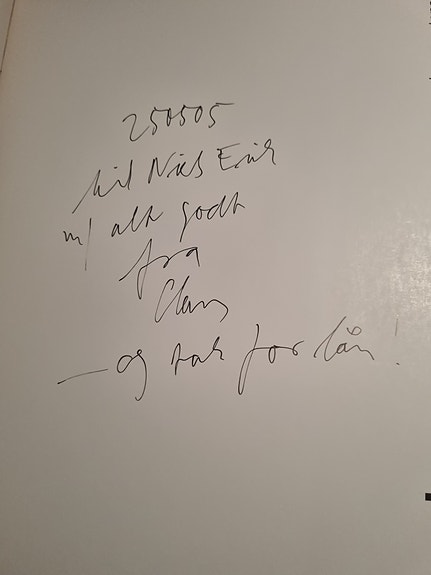 250505
til Niels Erik
m/ alt godt
fra
Claus
— og tak for lån!